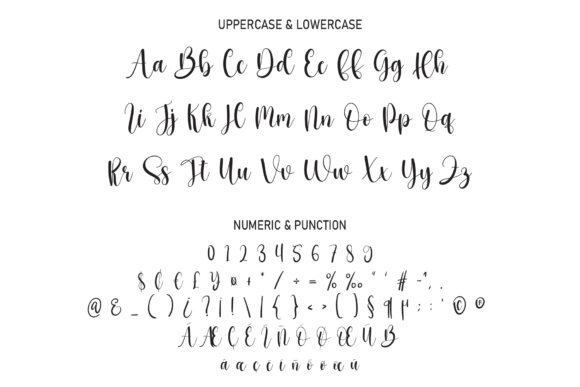 UPPERCASE & LOWERCASE
Aa Bb Cc Dd Ee Ff Gg Hh
Ii Jj Kk Ll Mm Nn Oo Pp Qq
Rr Ss Tt Uu Vv Ww Xx Yy Zz
NUMERIC & PUNCTION
0 1 2 3 4 5 6 7 8 9
$ ₵ € £ ¥ ¤ + * / ÷ = % ‰ “ ‘ # - ^ , .
@ & _ ( ) ¿ ? ¡ ! \ | { } < > [ ] § ¶ µ ; : ' © ®
Á Æ Ç É Í Ñ Ó Ø Œ Ú ß
á æ ç é í ñ ó ø œ ú